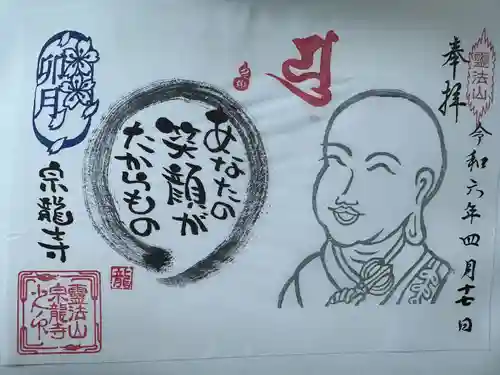 奉拝
靈法山
令和六年四月十七日
あなたの
笑顔が
たからもの
卯月
宗龍寺
龍
靈法山
宗龍寺